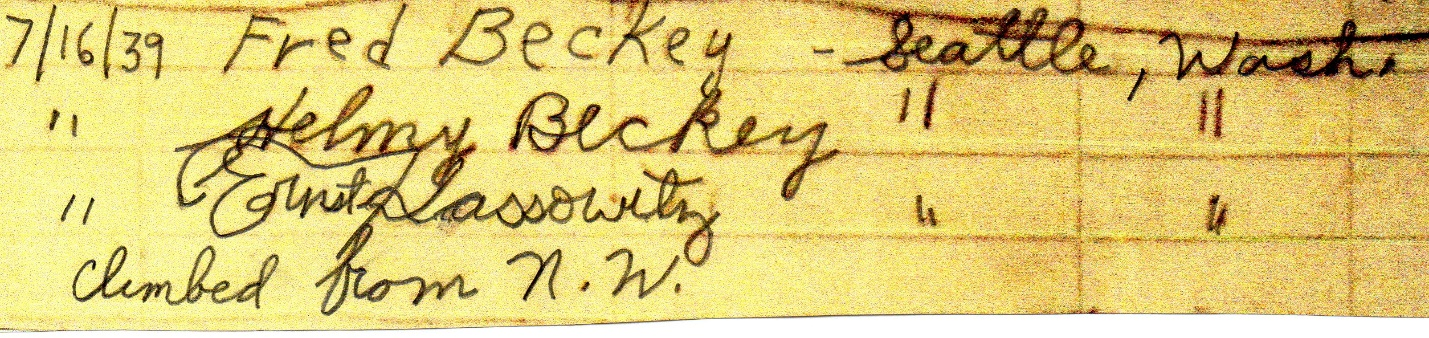 7/16/39 Fred Beckey - Seattle, Wash.
" Helmy Beckey " "
" Ernst Lassowitz " "
Climbed from N.W.